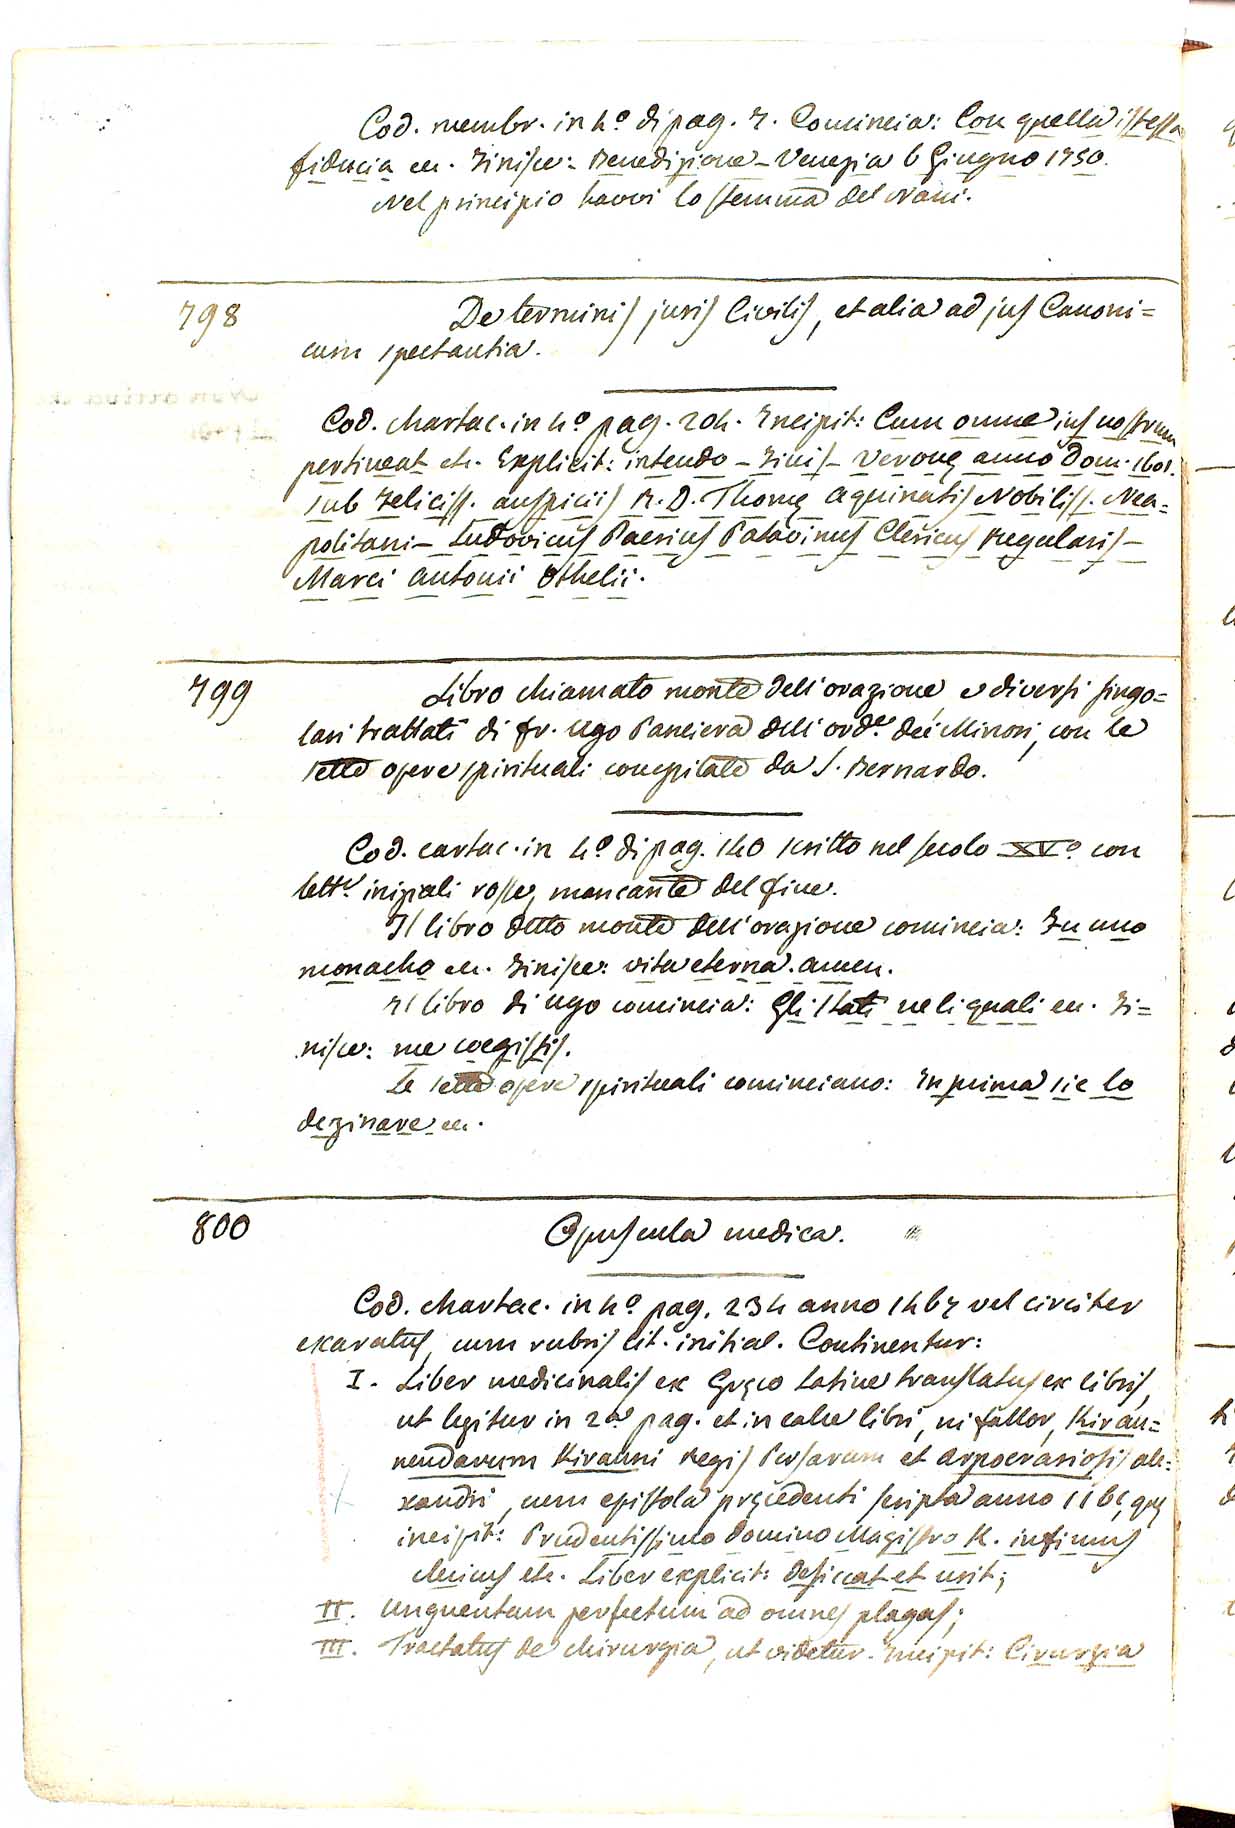 Cod. membr. in 4.º di pag. 7. Comincia: Con quella istessa
fiducia ec. Finisce: Benedizione – Venezia 6 Giugno 1750.
Nel principio havvi lo stemma del Nani.
798
De terminis juris Civilis, et alia ad jus Canoni=
cum spectantia.
Cod. chartac. in 4.º pag. 204. Incipit: Cum omne ius nostrum
pertineat etc. Explicit: intendo – Finis – Veronę anno Dom. 1601.
sub Feliciss. auspiciis R. D. Thomę Aquinatis Nobiliss. Nea=
politani – Ludovicus Paerius Patavinus Clericus Regularis –
Marci Antonii Othelii.
799
Libro chiamato monte dell'orazione, e diversi singo=
lari trattati di fr. Ugo Panciera dell'ord.e dei Minori, con le
sette opere spirituali compitate da S. Bernardo.
Cod. cartac. in 4.º di pag. 140 scritto nel secolo XV.º con
lett.e iniziali rosse, mancante del fine.
Il libro detto monte dell'orazione comincia: In uno
monacho ec. Finisce: vita eterna. amen.
Il libro di Ugo comincia: Gli stati neli quali ec. Fi=
nisce: me coegistis.
Le sette opere spirituali cominciano: In prima sie lo
dezinare ec.
800
Opuscula medica.
Cod. chartac. in 4.º pag. 234 anno 1467 vel circiter
exaratus, cum rubris lit. initial. Continentur:
I. Liber medicinalis ex Gręco Latine translatus ex libris,
ut legitur in 2a pag. et in calce libri, ni fallor, Kiran=
nendarum Kiranni Regis Persarum et Arpocrasiosis ale=
xandri, cum epistola pręcedenti scripta anno 1161, quę
incipit: Prudentissimo Domino Magistro K. infimus
clericus etc. Liber explicit: desiccat et urit;
II. Unguentum perfectum ad omnes plagas;
III. Tractatus de chirurgia, ut videtur. Incipit: Cirurgia